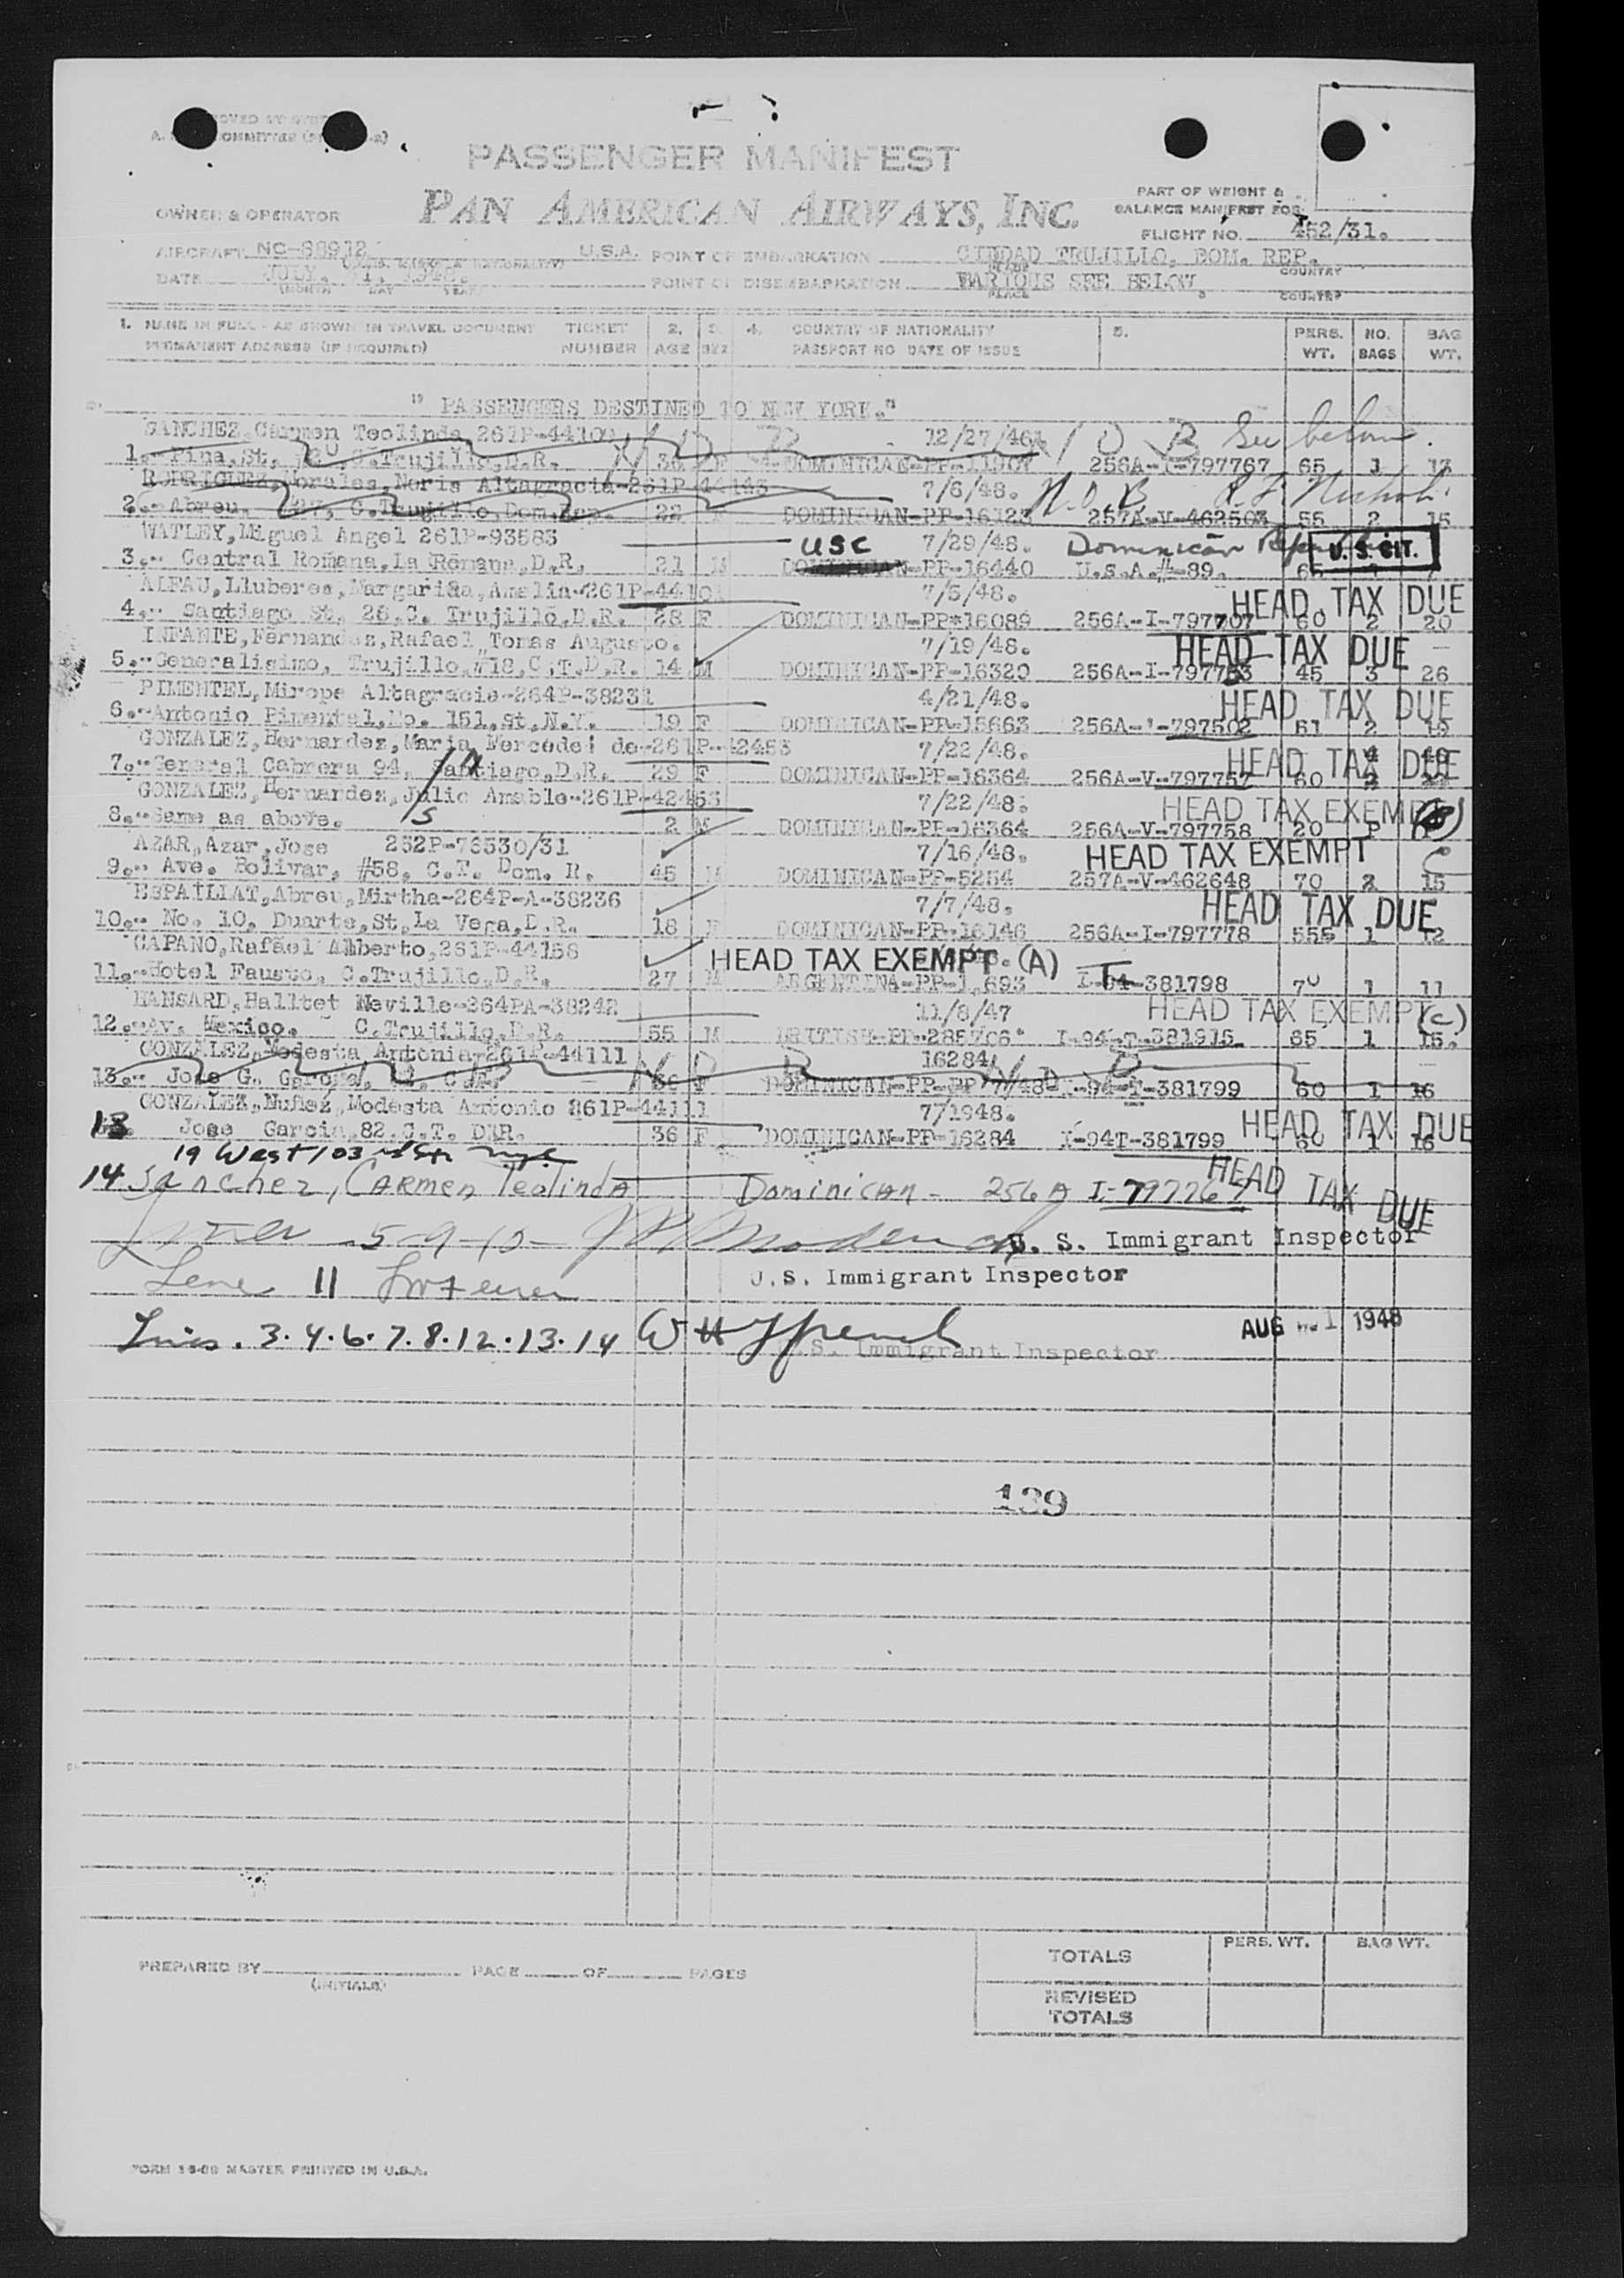 PASSENGER MANIFEST
PAN AMERICAN AIRWAYS, INC.
OWNER & OPERATOR
PART OF WEIGHT &
BALANCE MANIFEST FOR
FLIGHT NO. 452/31.
AIRCRAFT NC-88912 U.S.A. POINT OF EMBARKATION CIUDAD TRUJILLO, DOM. REP.
DATE JULY, 1948. POINT OF DISEMBARKATION VARIOUS SEE BELOW.
(MONTH DAY YEAR) PLACE COUNTRY
1. NAME IN FULL - AS SHOWN IN TRAVEL DOCUMENT TICKET 2. 3. 4. COUNTRY OF NATIONALITY 5. PERS. NO. BAG
PERMANENT ADDRESS (IF REQUIRED) NUMBER AGE SEX PASSPORT NO DATE OF ISSUE WT. BAGS WT.
" PASSENGERS DESTINED TO NEW YORK."
SANCHEZ, Carmen Teolinda 261P-44109 12/27/46 N O B See below.
1.- Pina, St, C.Trujillo, D.R. 36 F DOMINICAN-PP- 256A-I-797767 65 1 13
RODRIGUEZ, Morales, Noris Altagracia-261P-44143 7/6/48. N.O.B.
2.- Abreu, C.Trujillo, Dom.Rep. 22 F DOMINICAN-PP-16123 257A-V-462503 55 2 15
WATLEY, Miguel Angel 261P-93583 USC 7/29/48. Dominican U. S. CIT.
3.- Central Romana, La Romana, D.R. 21 M DOMINICAN-PP-16440 U.S.A.#-89. 65
ALFAU, Lluberes, Margarita, Amalia-261P-44 7/5/48. HEAD TAX DUE
4.- Santiago St, 28, C. Trujillo, D.R. 28 F DOMINICAN-PP*16089 256A-I-797707 60 2 20
INFANTE, Fernandez, Rafael Tomas Augusto. 7/19/48. HEAD TAX DUE
5.- Generalisimo, Trujillo, #18, C.T.D.R. 14 M DOMINICAN-PP-16320 256A-I-797753 45 3 26
PIMENTEL, Mirope Altagracia-264P-38231 4/21/48. HEAD TAX DUE
6.- Antonio Pimentel, No. 151, st, N.Y. 19 F DOMINICAN-PP-15663 256A-I-797502 61 2 19
GONZALEZ, Hernandez, Maria Mercedes de-261P-42453 7/22/48. HEAD TAX DUE
7.- General Cabrera 94, Santiago, D.R. 29 F DOMINICAN-PP-16364 256A-V-797757 60
GONZALEZ, Hernandez, Julio Amable-261P-42453 7/22/48. HEAD TAX EXEMPT (B)
8.- Same as above. 2 M DOMINICAN-PP-16364 256A-V-797758 20
AZAR, Azar, Jose 252P-76530/31 7/16/48. HEAD TAX EXEMPT C
9.- Ave. Bolivar, #58, C.T. Dom. R. 45 M DOMINICAN-PP-5254 257A-V-462648 70 2 15
ESPAILLAT, Abreu, Mirtha-264P-A-38236 7/7/48. HEAD TAX DUE
10.- No. 10. Duarte, St, La Vega, D.R. 18 F DOMINICAN-PP-16146 256A-I-797778 55 1 12
CAPANO, Rafael Alberto, 261P-44158 HEAD TAX EXEMPT (A)
11.- Hotel Fausto, C.Trujillo, D.R. 27 M ARGENTINA-PP-1,693 I-94-381798 70 1 11
HANSARD, Halltet Neville-264PA-38242 11/8/47 HEAD TAX EXEMPT (C)
12.- Av. Mexico. C.Trujillo, D.R. 55 M BRITISH-PP-285706 I-94-T-381915 65 1 15.
GONZALEZ, Modesta Antonia-261P-44111 16284 N O B
13.- Jose G. Garcia, C.T. 36 F DOMINICAN-PP-PP 7/7/48 I-94-T-381799 60 1 16
GONZALEZ, Nuñez, Modesta Antonio 261P-44111 7/1948. HEAD TAX DUE
13 Jose Garcia, 82, C.T. DR. 36 F DOMINICAN-PP-16284 I-94T-381799 60 1 16
19 West 103 NYC
14 Sanchez, Carmen Teolinda Dominican - 256A I-797767 HEAD TAX DUE
5-9-10- U. S. Immigrant Inspector
Line 11 U.S. Immigrant Inspector
Lines. 3.4.6.7.8.12.13.14 U.S. Immigrant Inspector AUG 1 1948
139
TOTALS PERS. WT. BAG WT.
PREPARED BY PAGE OF PAGES
(INITIALS)
REVISED
TOTALS
MASTER PRINTED IN U.S.A.